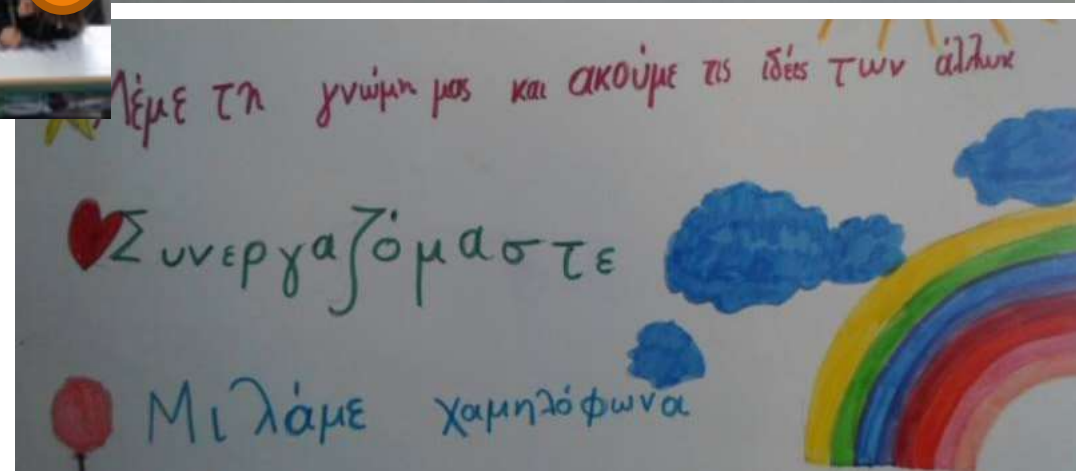 Λέμε τη γνώμη μας και ακούμε τις ιδέες των άλλων
Συνεργαζόμαστε
Μιλάμε χαμηλόφωνα